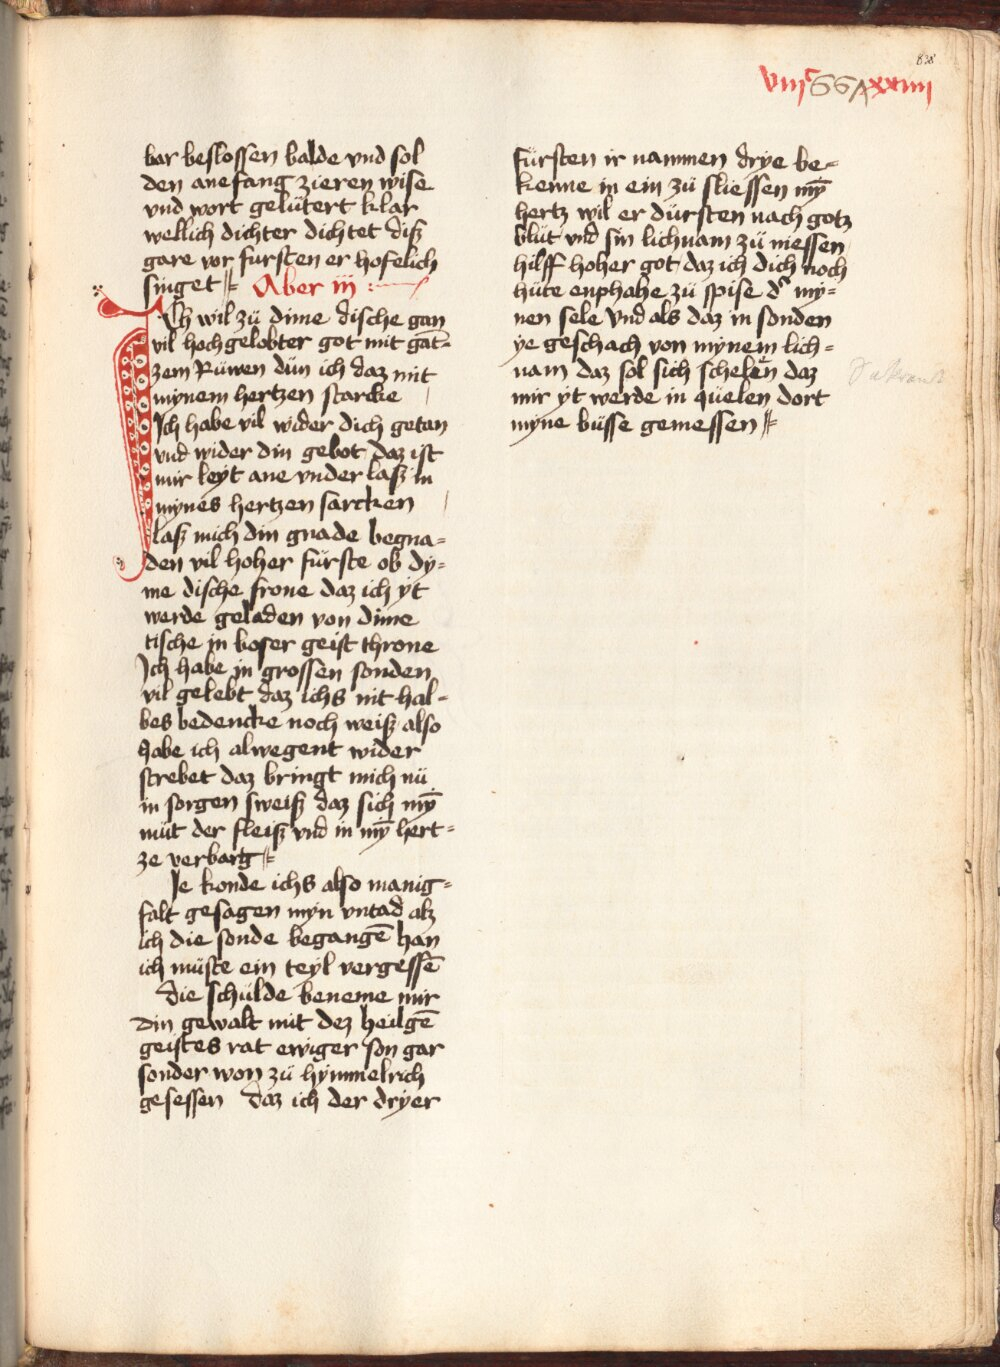 838
viijᶜ xxxiiij
bar beslossen balde vnd sol
den anefang zieren wise
vnd wort gelütert klar
wellich dichter dichtet diß
gare vor fursten er hofelich
singet Aber iij
Ich wil zü dime dische gan
vil hochgelobter got mit gãt-
zem Rüwen dün ich daz mit
mynem hertzen starcke
Ich habe vil wider dich getan
vnd wider din gebot daz ist
mir leyt ane vnder laß in
mynes hertzen sarcken
laß mich din gnade begna-
den vil hoher fürste ob dy-
me dische frone daz ich yt
werde geladen von dime
tische in boser geist throne
Ich habe in grossen sonden
vil gelebt daz ichs nit hal-
bes bedencke noch weiß also
habe ich alwegent wider
strebet daz bringt mich nü
in sorgen sweiß daz sich mȳ
müt der fleiß vnd in mȳ hert-
ze verbarg
Ie konde ichs also manig-
falt gesagen myn vntad alz
ich die sonde begangē han
ich müste ein teyl vergessē
die schülde beneme mir
din gewalt mit dez heilgē
geistes rat ewiger son gar
sonder won zü hymmelrich
gesessen daz ich der dryer
fürsten ir nammen drye be-
kenne in ein zü sliessen mȳ
hertz wil er dürsten nach gotz
blüt vnd sin lichnam zü niessen
hilff hoher got daz ich dich noch
hüte enphahe zü spise dˀ my-
nen sele vnd als daz in sonden
ye geschach von mynem lich-
nam daz sol sich schelen daz
mir yt werde in quelen dort
myne büsse gemessen